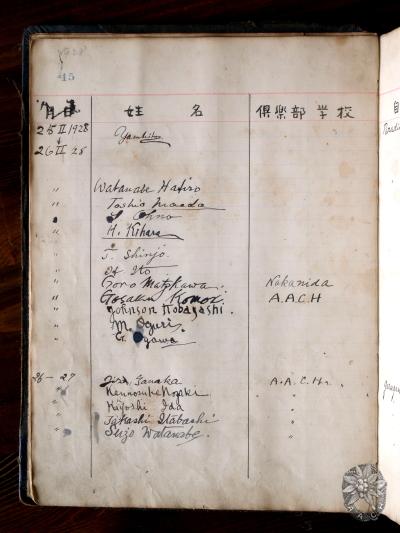 15
月日 姓名 倶楽部学校
25 II 1928
26 II 28
" Watanabe Hatiro
" Toshio Maeda
Ohno
" H. Kihara
" T. Shinjo
" Ito
" Goro Matskawa. Nakanida
" Gosaku Komoi. A.A.C.H
" Johnson Kobayashi.
" M. Oguri.
" G. Ogawa.
26 - 27 Jiro Tanaka A.A.C.H.
" Kennosuke Nozaki "
" Kiyoshi Ida "
" Takashi Itabashi "
" Sujo Watanabe. "